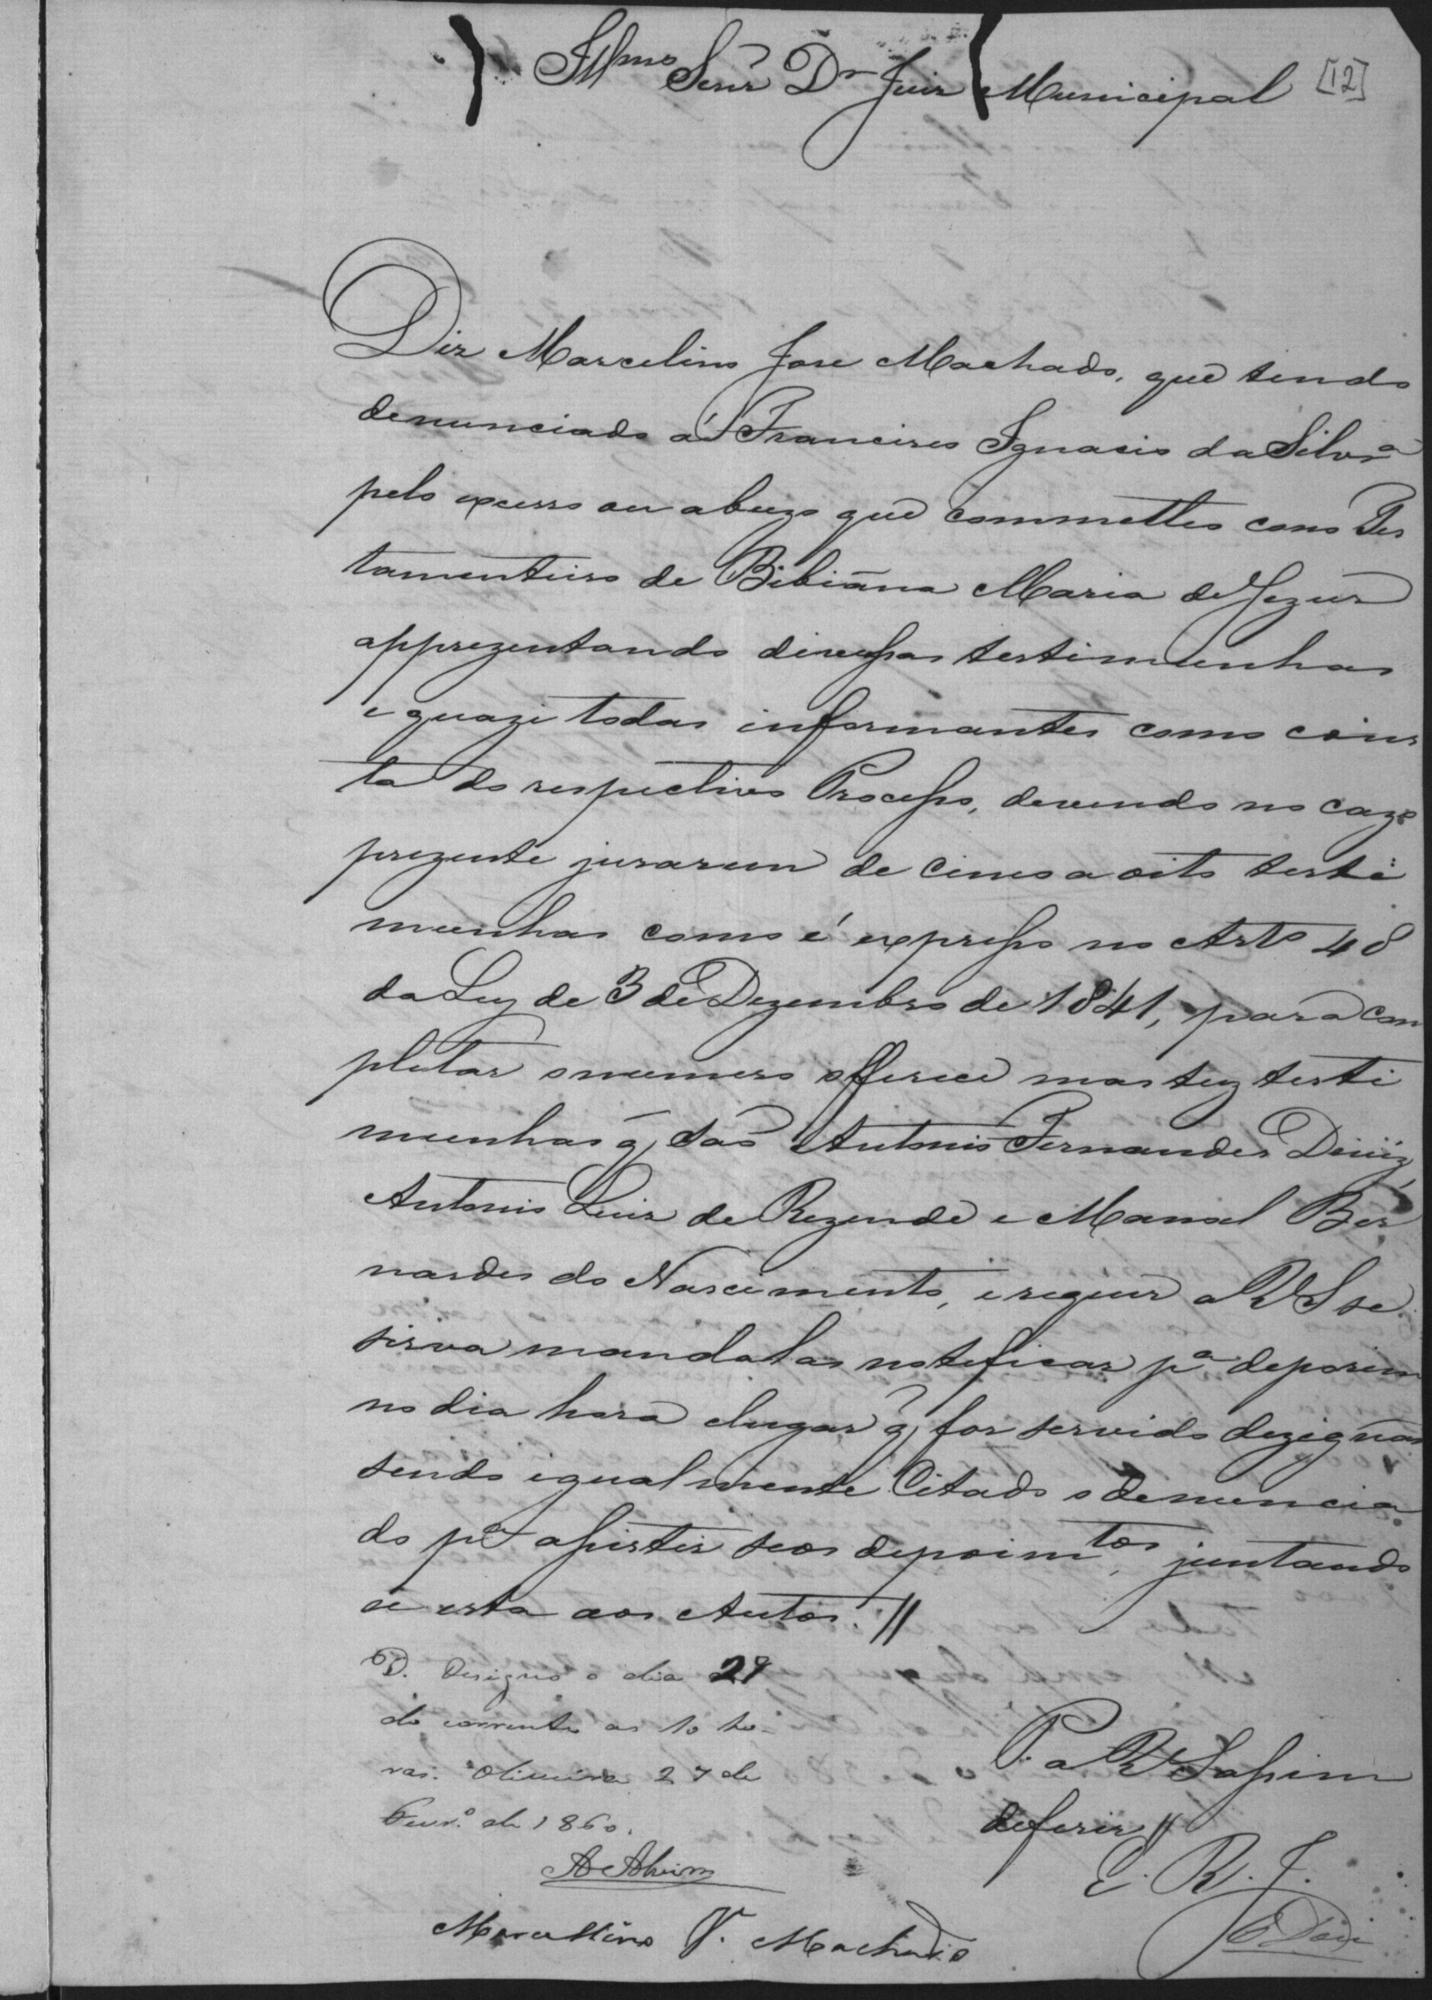 Illmo Senr Dr Juiz Municipal [12]
Diz Marcelino Jose Machado, que tendo
denunciado á Francisco Ignacio da Silvra
pelo excesso ou abuzo que commetteo como Tes
tamenteiro de Bibiana Maria de Jezus
apprezentando diversas testimunhas
e quazi todas informantes como cons
ta do respectivo Processo, devendo no cazo
prezente jurarem de cinco a oito testi
munhas como é expresso no Arto 48
da Ley de 3 de Dezembro de 1841, para com
pletar o numero offerece mas trez testi
munhas q. são Antonio Fernandes Diniz,
Antonio Luiz de Rezende e Manoel Ber
nardes do Nascimento, e requer a V S se
sirva mandalas noteficar pa. deporem
no dia hora e lugar q. for servido dezignar
sendo igualmente Citado o denuncia
do pa assistir seos depoimtos, juntando
se esta aos Autos. //
D. Designo o dia 29
do corrente as 10 ho-
ras. Oliveira 27 de
Fevro. de 1860.
P. a V S assim
deferir //
E. R. J.
Marcellino J. Machado